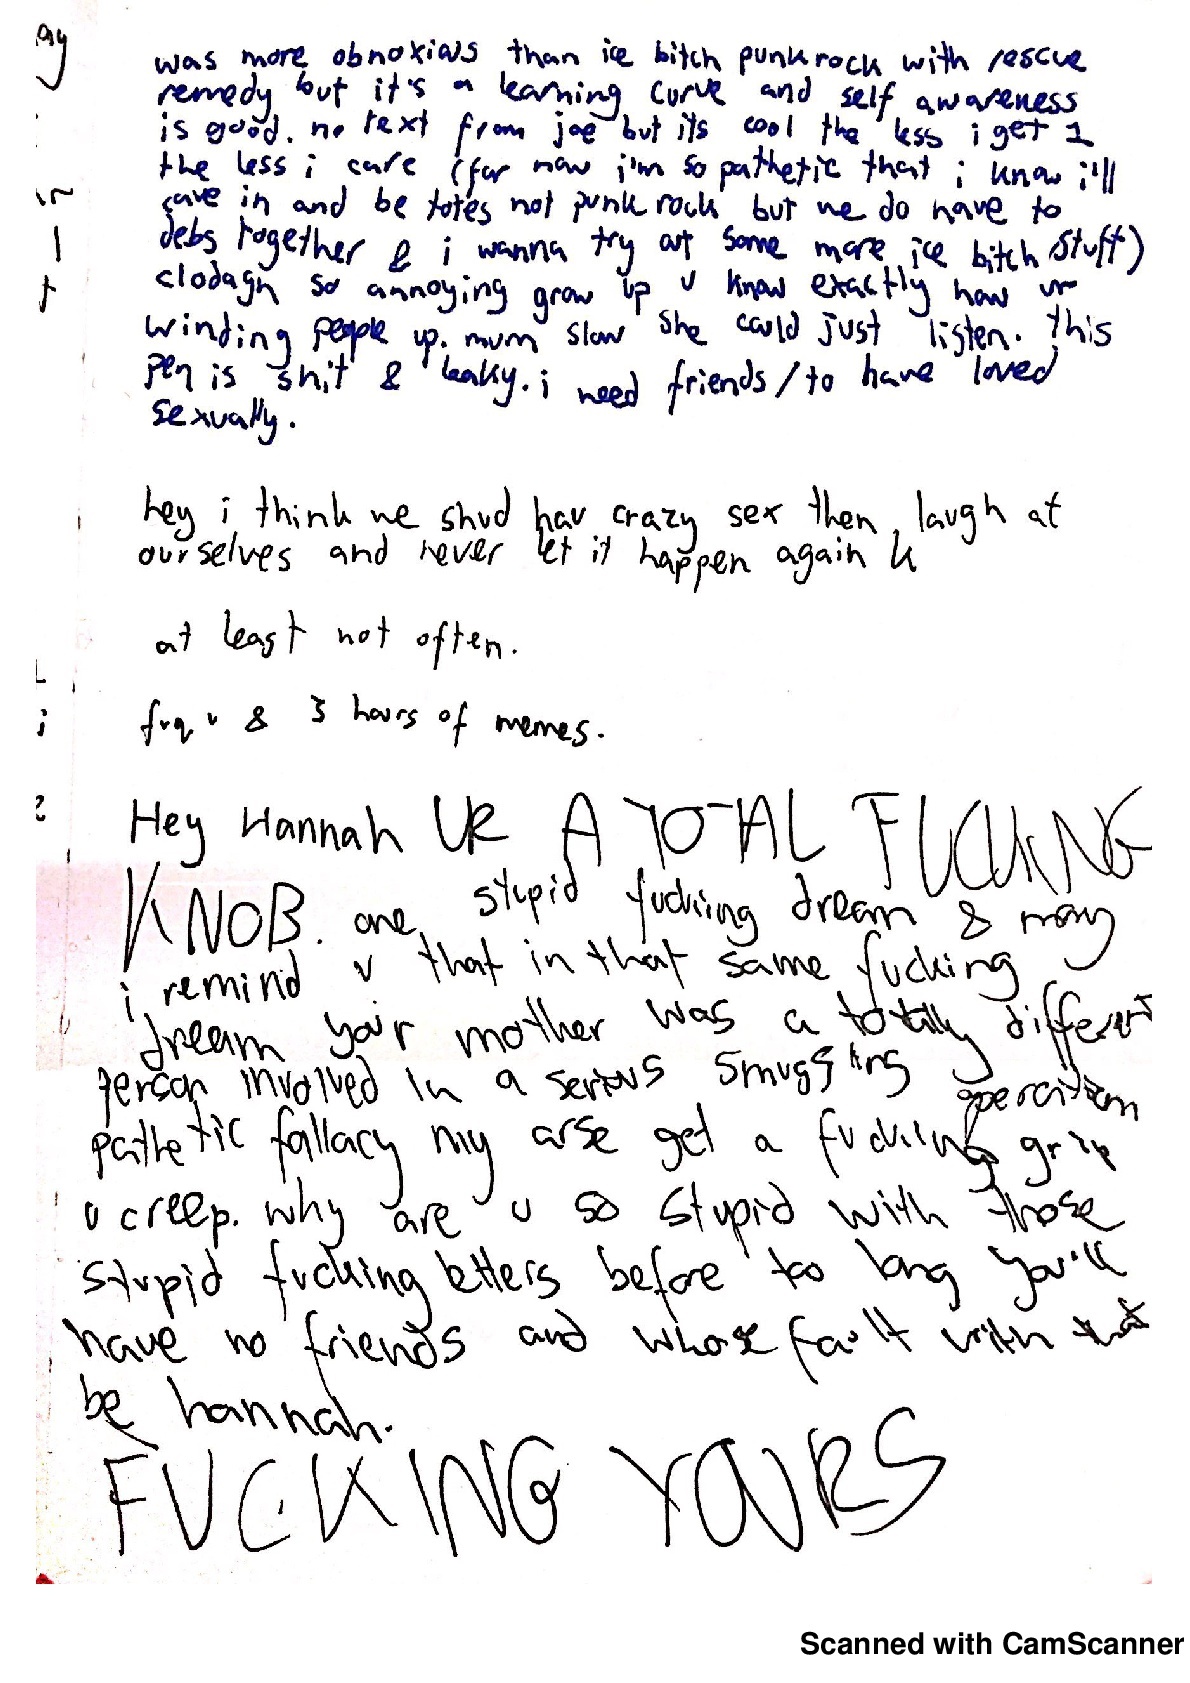 ay
was more obnoxious than ice bitch punkrock with rescue
remedy but it's a learning curve and self awareness
is good. no text from joe but its cool the less i get 1
the less i care (for now i'm so pathetic that i know i'll
cave in and be totes not punk rock but we do have to
debs together & i wanna try out some more ice bitch stuff)
clodagh so annoying grow up u know exactly how ur
winding people up. mum slow she could just listen. this
pen is shit & leaky. i need friends/to have loved
sexually.
hey i think we shud hav crazy sex then laugh at
ourselves and never let it happen again k
at least not often.
& 3 hours of memes.
Hey Hannah UR A TOTAL FUCKING
KNOB. one stupid fucking dream & may
i remind u that in that same fucking
dream your mother was a totally different
person involved in a serious smuggling operation
pathetic fallacy my arse get a fucking grip
u creep. why are u so stupid with those
stupid fucking letters before too long you'll
have no friends and whose fault with that
be hannah.
FUCKING YOURS
Scanned with CamScanner